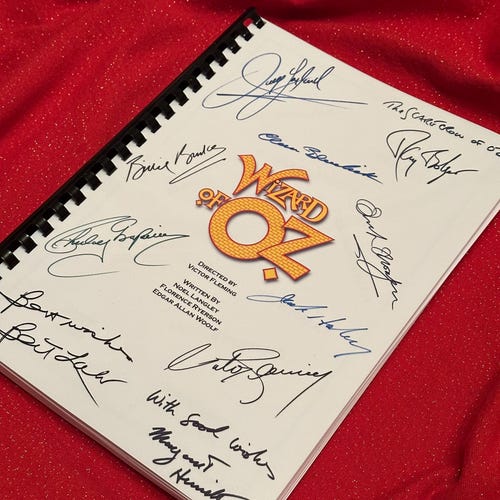 Judy Garland
The Scarecrow of Oz
Ray Bolger
Clara Blandick
Billie Burke
WIZARD
OF OZ.
Frank Morgan
DIRECTED BY
VICTOR FLEMING
WRITTEN BY
NOEL LANGLEY
FLORENCE RYERSON
EDGAR ALLAN WOOLF
Jack Haley
Best wishes
Bert Lahr
With good wishes
Margaret
Hamilton